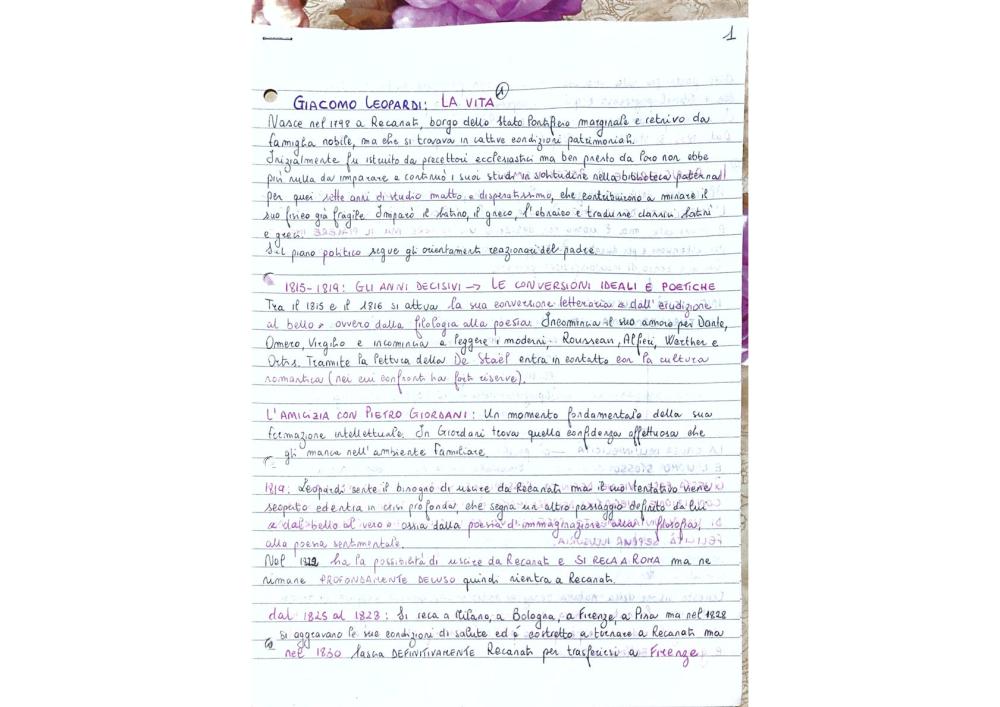 1
GIACOMO LEOPARDI: LA VITA 1
Nasce nel 1798 a Recanati, borgo dello Stato Pontificio marginale e retrivo da
famiglia nobile, ma che si trovava in cattive condizioni patrimoniali.
Inizialmente fu istruito da precettori ecclesiastici ma ben presto da loro non ebbe
più nulla da imparare e continuò i suoi studi in solitudine nella biblioteca paterna
per quei sette anni di studio matto e disperatissimo, che contribuirono a minare il
suo fisico già fragile. Imparò il latino, il greco, l'ebraico e tradusse classici latini
e greci.
Sul piano politico segue gli orientamenti reazionari del padre.
1815-1819: GLI ANNI DECISIVI → LE CONVERSIONI IDEALI E POETICHE
Tra il 1815 e il 1816 si attua la sua conversione letteraria « dall'erudizione
al bello » ovvero dalla filologia alla poesia. Incomincia il suo amore per Dante,
Omero, Virgilio e incomincia a leggere i moderni, Rousseau, Alfieri, Werther e
Ortis. Tramite la lettura della De Staël entra in contatto con la cultura
romantica (nei cui confronti ha forti riserve).
L'AMICIZIA CON PIETRO GIORDANI: Un momento fondamentale della sua
formazione intellettuale. In Giordani trova quella confidenza affettuosa che
gli manca nell'ambiente familiare.
1819: Leopardi sente il bisogno di uscire da Recanati ma il suo tentativo viene
scoperto ed entra in crisi profonda, che segna un altro passaggio definito da lui
« dal bello al vero » ossia dalla poesia di immaginazione alla filosofia,
alla poesia sentimentale.
Nel 1822 ha la possibilità di uscire da Recanati e SI RECA A ROMA ma ne
rimane PROFONDAMENTE DELUSO quindi rientra a Recanati.
dal 1825 al 1828: Si reca a Milano, a Bologna, a Firenze, a Pisa ma nel 1828
si aggravano le sue condizioni di salute ed è costretto a tornare a Recanati ma
nel 1830 lascia DEFINITIVAMENTE Recanati per trasferirsi a Firenze